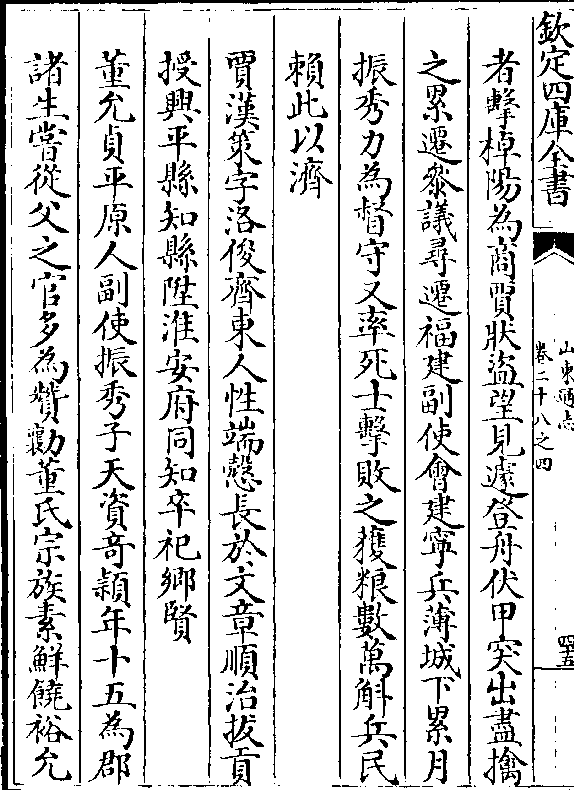 欽定四庫全書
山東通志
卷二十八之四
四五
者擊棹陽為商賈狀盜望見遽登舟伏甲突出盡擒
之累遷叅議尋遷福建副使會建寧兵薄城下累月
振秀力為督守又率死士擊敗之獲粮數萬斛兵民
賴此以濟
賈漢策字洛俊齊東人性端慤長於文章順治拔貢
授興平縣知縣陞淮安府同知卒祀鄉賢
董允貞平原人副使振秀子天資竒穎年十五為郡
諸生嘗從父之官多為贊勷董氏宗族素鮮饒裕允